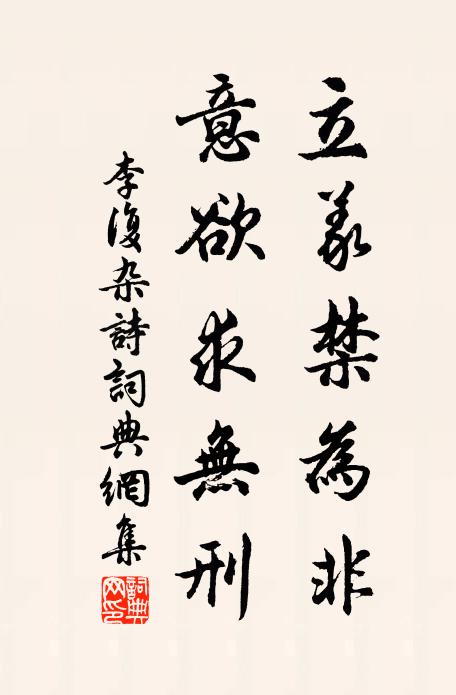 立義禁為非
意欲求無刑
李復杂詩詞典網集
詞典網印